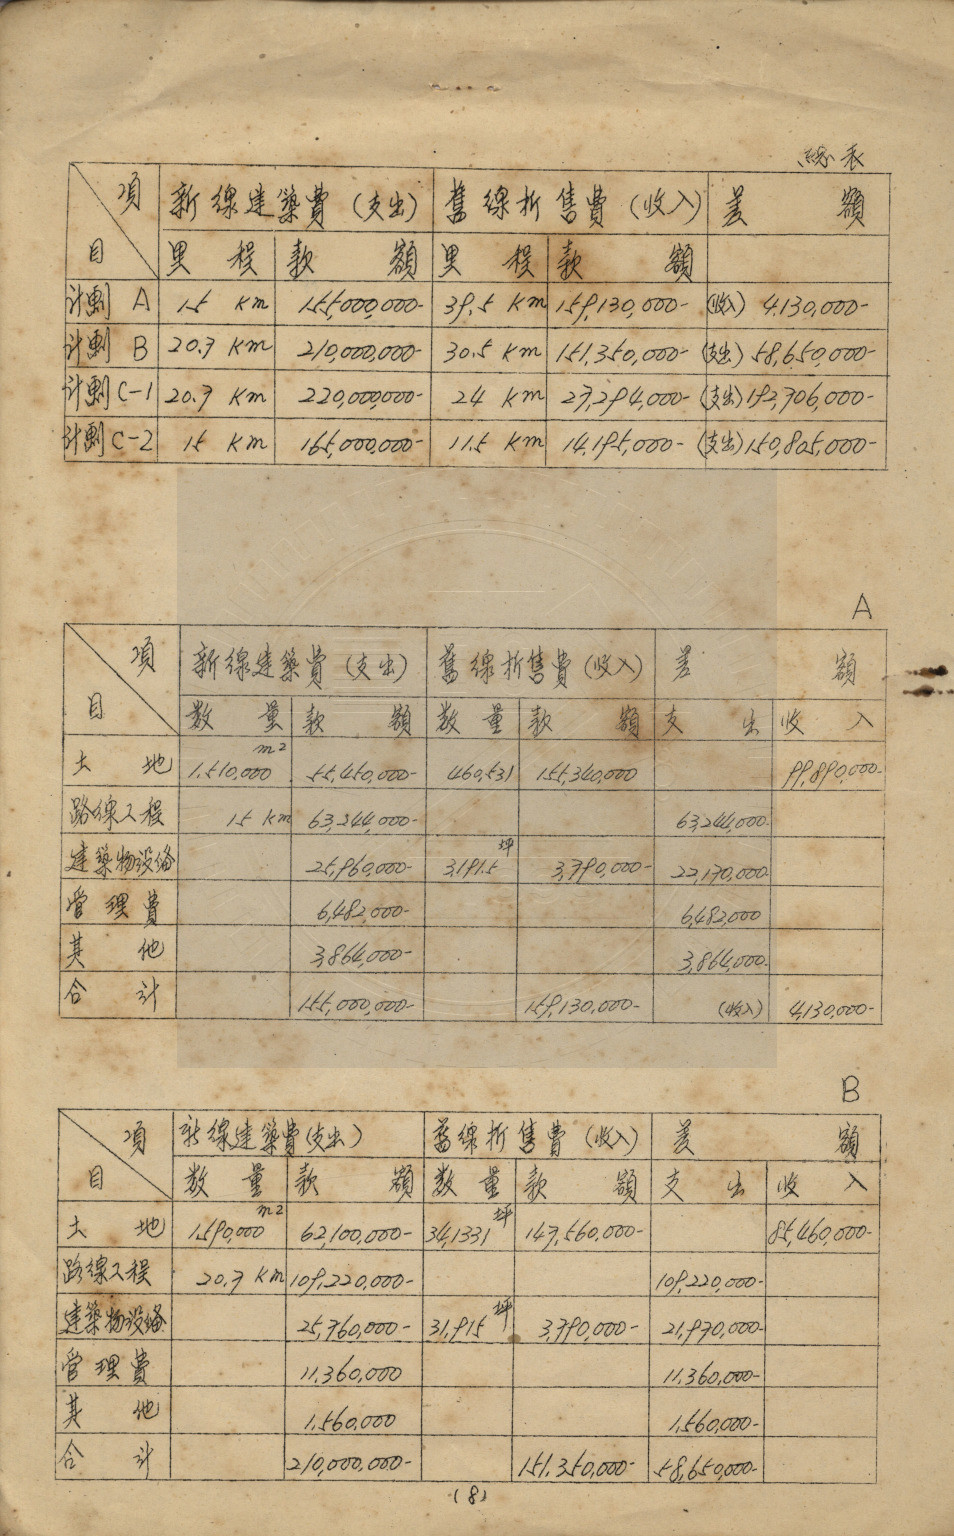 總表
項目 新線建築費(支出) 舊線折售費(收入) 差額
里程 款額 里程 款額
計劃 A 15 Km 155,000,000- 39.5 Km 159,130,000- (收入) 4,130,000-
計劃 B 20.7 Km 210,000,000- 30.5 Km 151,350,000- (支出) 58,650,000-
計劃 C-1 20.7 Km 220,000,000- 24 Km 27,294,000- (支出) 192,706,000-
計劃 C-2 15 Km 165,000,000- 11.5 Km 14,195,000- (支出) 150,805,000-
A
項目 新線建築費(支出) 舊線折售費(收入) 差額
数量 款額 数量 款額 支出 收入
土地 1,510,000 m2 55,450,000- 460,531 155,340,000 99,890,000-
路線工程 15 Km 63,244,000- 63,244,000-
建築物設备 25,960,000- 3,191.5 坪 3,790,000- 22,170,000
管理費 6,482,000- 6,482,000
其他 3,864,000- 3,864,000-
合計 155,000,000- 159,130,000- (收入) 4,130,000-
B
項目 新線建築費(支出) 舊線折售費(收入) 差額
数量 款額 数量 款額 支出 收入
土地 1,590,000 m2 62,100,000- 34,1331 坪 147,560,000- 85,460,000-
路線工程 20.7 Km 109,220,000- 109,220,000-
建築物設备 25,760,000- 31,915 坪 3,790,000- 21,970,000-
管理費 11,360,000 11,360,000-
其他 1,560,000 1,560,000-
合計 210,000,000- 151,350,000- 58,650,000-
(8)